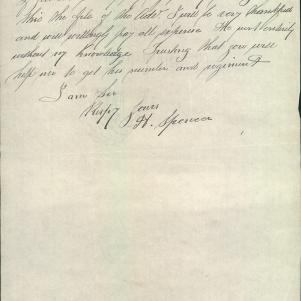 this the fate of the lad. I will be very thankful
and will willingly pay all expence. He went entirely
without my knowledge. Trusting that you will
help me to get his number and regiment
I am Sir
Respy Yours
H. Spencer